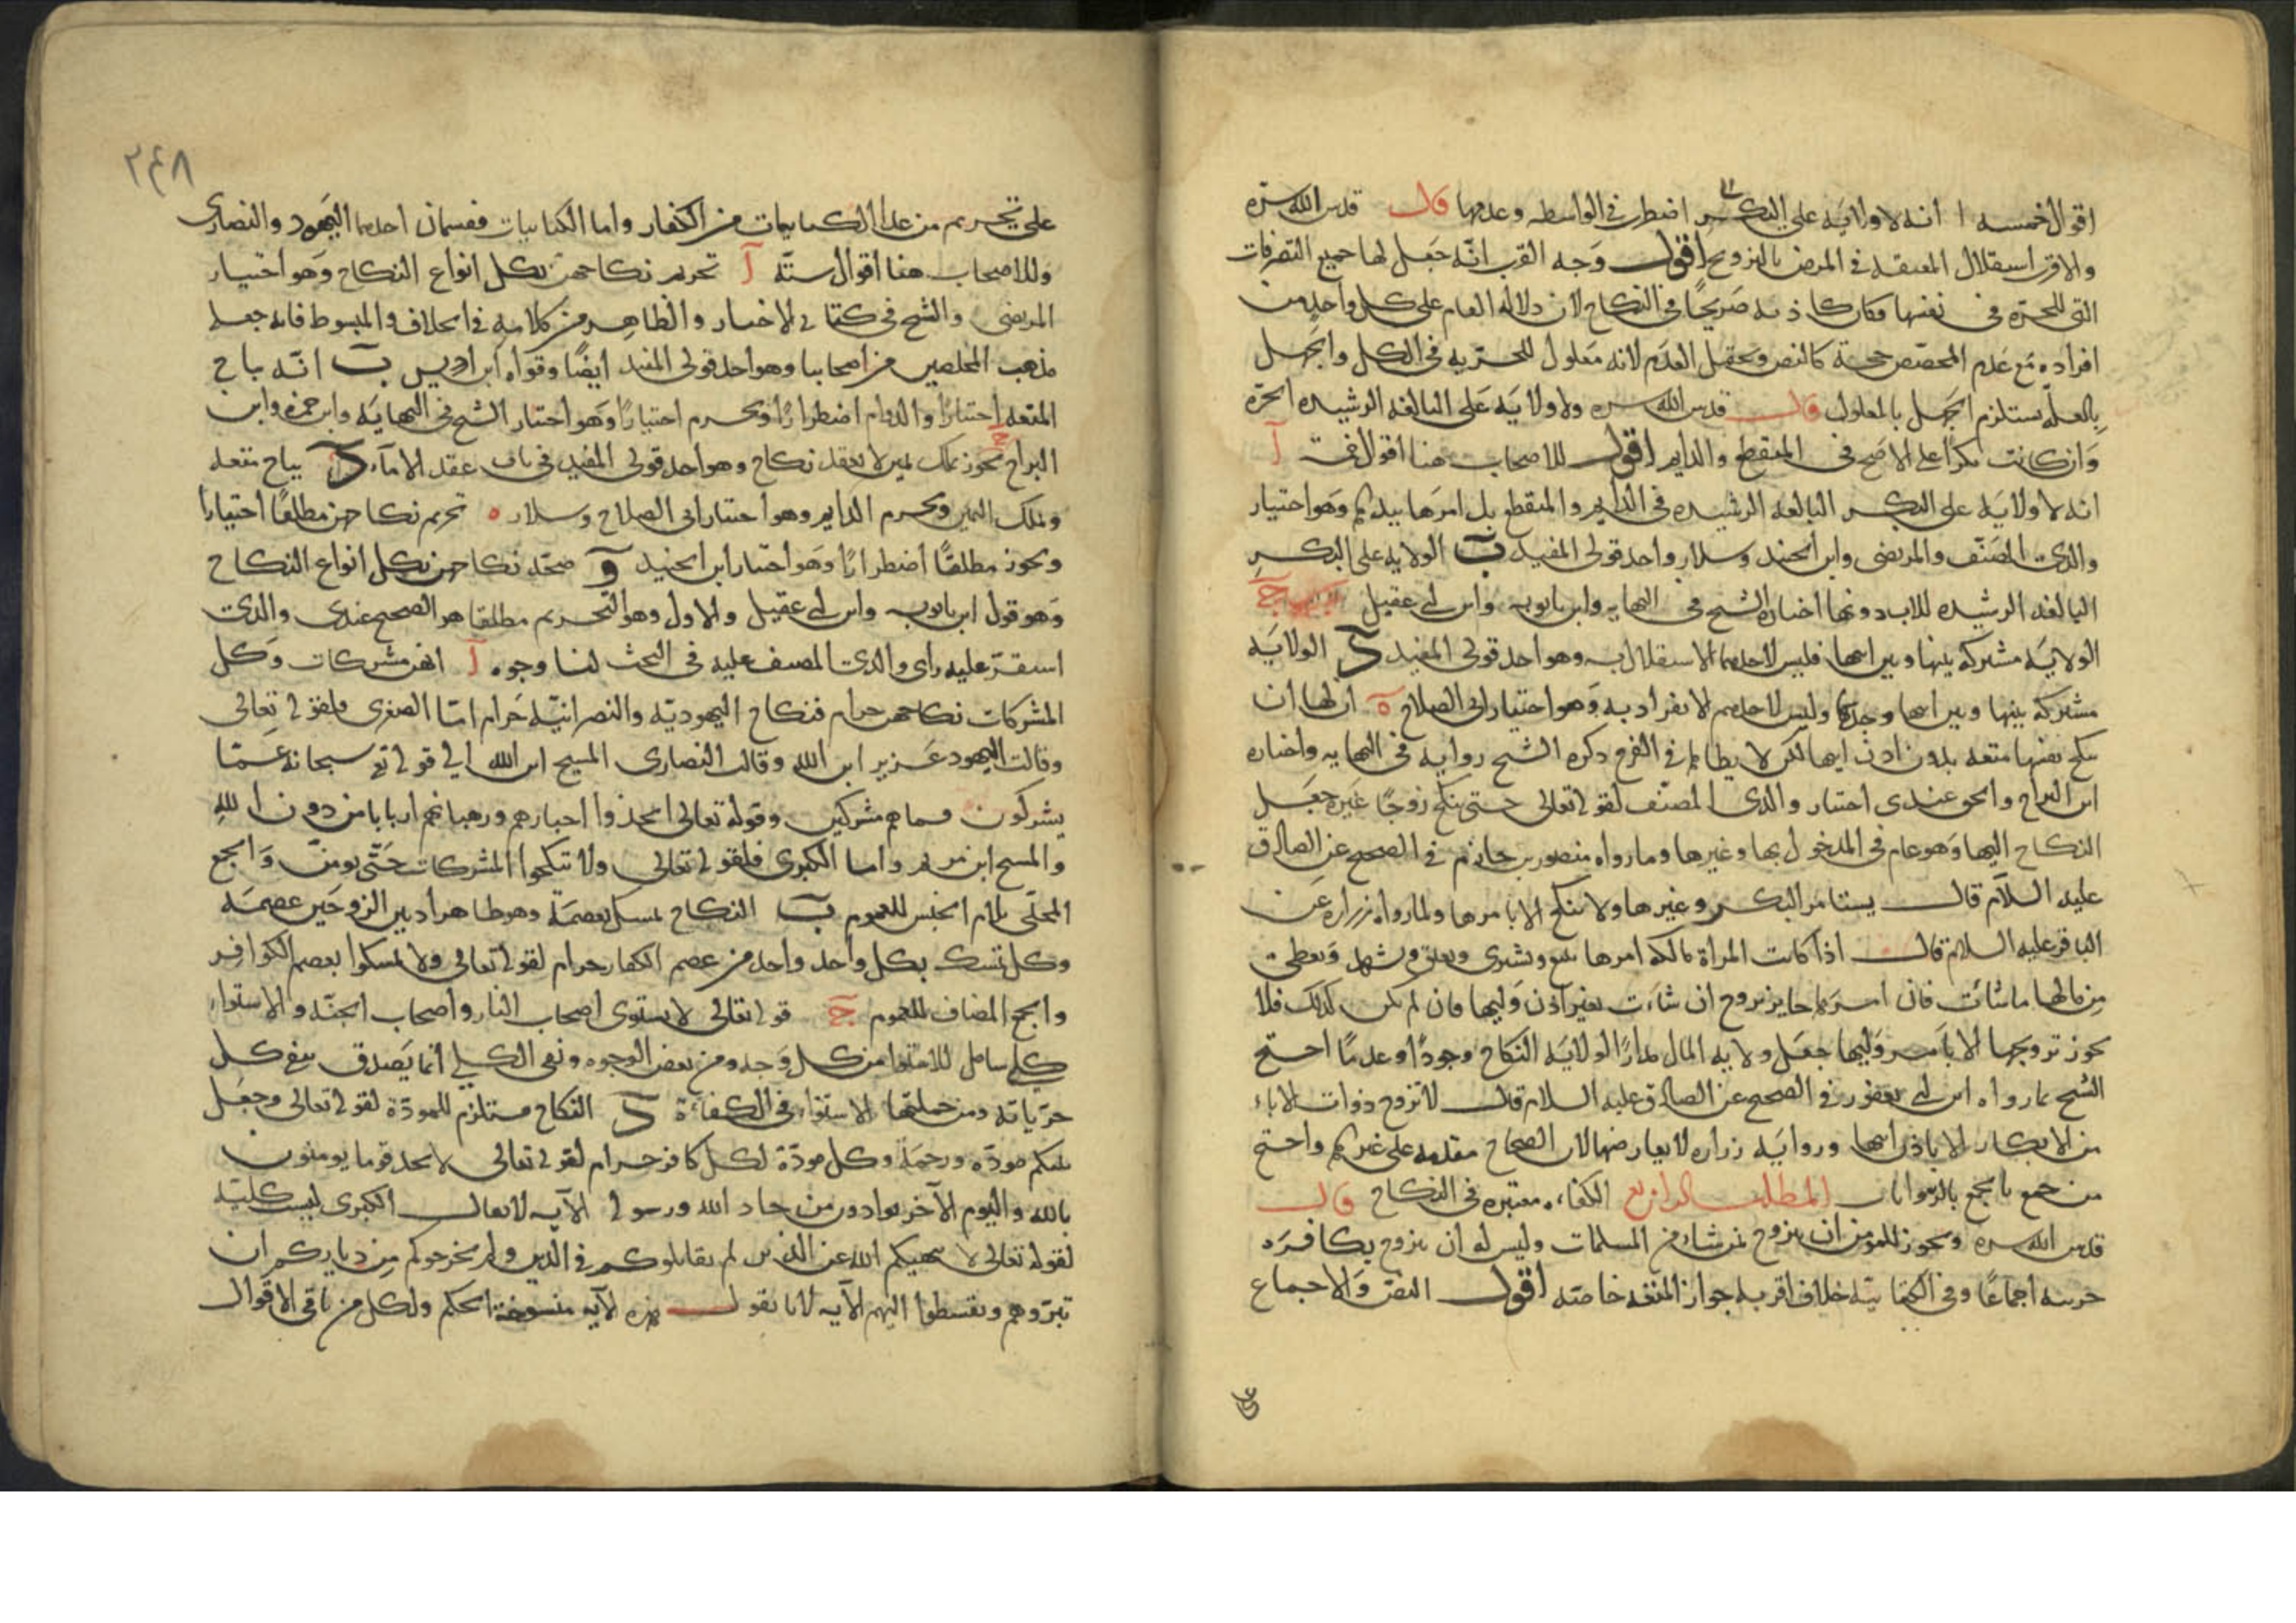 اقوال خمسه ا انه لا ولايه على البكر اضطر في الواسطه وعدمها قال قدس الله سره
والاقرب استقلال المعتقه في المرض بالتزويج اقول وجه القرب انه جعل لها جميع التصرفات
التي للحرة في نفسها فكان كاذنه صريحا في النكاح لان دلالة العام على كل واحد من
افراده مع عدم المخصص حجة كالنص ويحتمل العدم لانه معلول للحرية في الكل والجهل
بالعلة يستلزم الجهل بالمعلول قال قدس الله سره ولا ولاية على البالغه الرشيده الحرة
وان كانت بكرا على الاصح في المنقطع والدايم اقول للاصحاب هنا اقوال آ
انه لا ولايه على البكر البالغه الرشيده في الدايم والمنقطع بل امرها بيدها وهو اختيار
والدي المصنف والمرتضى وابن الجنيد وسلار واحد قولي المفيد ب الولايه على البكر
البالغه الرشيده للاب دونها اختاره الشيخ في النهايه وابن بابويه وابن ابي عقيل ج
الولاية مشتركه بينها وبين ابيها فليس لاحدهما الاستقلال به وهو احد قولي المفيد د الولايه
مشتركه بينها وبين ابيها وجدها وليس لاحدهم الانفراد به وهو اختيار ابي الصلاح ه ان لها ان
تنكح نفسها متعه بدون اذن ابيها لكن لا يطاها في الفرج ذكره الشيخ روايه في النهايه واختاره
ابن البراج والحق عندي اختيار والدي المصنف لقوله تعالى حتى تنكح زوجا غيره جعل
النكاح اليها وهو عام في المدخول بها وغيرها وما رواه منصور بن حازم في الصحيح عن الصادق
عليه السلام قال يستامر البكر وغيرها ولا تنكح الا بامرها ولما رواه زراره عن
الباقر عليه السلام قال اذا كانت المراة مالكة امرها تبيع وتشتري وتعتق وتشهد وتعطي
من مالها ما شائت فان امرها جايز تزوج ان شاءت بغير اذن وليها فان لم يكن كذلك فلا
يجوز تزويجها الا بامر وليها جعل ولايه المال مدارا لولاية النكاح وجودا وعدما احتج
الشيخ بما رواه ابن ابي يعفور في الصحيح عن الصادق عليه السلام قال لا تزوج ذوات الاباء
من الابكار الا باذن ابيها وروايه زراره لا يعارضها لان الصحاح مقدمه على غيرها واحتج
من جمع بالجمع بالروايات المطلب الرابع الكفاءه معتبره في النكاح قال
قدس الله سره ويجوز للمومن ان يتزوج بمن شاء من المسلمات وليس له ان يتزوج بكافره
حربيه اجماعا وفي الكتابيه خلاف اقربه جواز المتعه خاصه اقول النص والاجماع
على
٢٤٨
على تحريم من عدا الكتابيات من الكفار واما الكتابيات فقسمان احدهما اليهود والنصارى
وللاصحاب هنا اقوال ستة آ تحريم نكاحهن بكل انواع النكاح وهو اختيار
المرتضى والشيخ في كتابي الاخبار والظاهر من كلامه في الخلاف والمبسوط فانه جعله
مذهب المحصلين من اصحابنا وهو احد قولي المفيد ايضا وقواه ابن ادريس ب انه يباح
المتعه اختيارا والدوام اضطرارا ويحرم اختيارا وهو اختيار الشيخ في النهايه وابن حمزه وابن
البراج ج يجوز بملك يمين لا بعقد نكاح وهو احد قولي المفيد في باب عقد الاماء د يباح متعه
وملك اليمين ويحرم الدايم وهو اختيار ابي الصلاح وسلار ه تحريم نكاحهن مطلقا اختيارا
ويجوز مطلقا اضطرارا وهو اختيار ابن الجنيد و صحة نكاحهن بكل انواع النكاح
وهو قول ابن بابويه وابن ابي عقيل والاول وهو التحريم مطلقا هو الصحيح عندي والذي
استقر عليه راي والدي المصنف عليه في البحث لنا وجوه آ انهن مشركات وكل
المشركات نكاحهن حرام فنكاح اليهوديه والنصرانيه حرام اما الصغرى فلقوله تعالى
وقالت اليهود عزير ابن الله وقالت النصارى المسيح ابن الله الى قوله تع سبحانه عما
يشركون فسماهم مشركين وقوله تعالى اتخذوا احبارهم ورهبانهم اربابا من دون الله
والمسيح ابن مريم واما الكبرى فلقوله تعالى ولا تنكحوا المشركات حتى يومن والجمع
المحلى بلام الجنس للعموم ب النكاح تمسك بعصمة وهو ظاهر اذ بين الزوجين عصمه
وكل تمسك بكل واحد واحد من عصم الكفار حرام لقوله تعالى ولا تمسكوا بعصم الكوافر
والجمع المضاف للعموم ج قوله تعالى لا يستوي اصحاب النار واصحاب الجنة والاستواء
كلي شامل للاستوا من كل وجه ومن بعض الوجوه ونفي الكلي انما يصدق بنفي كل
جزياته ومن جملتها الاستواء في الكفاءة د النكاح مستلزم للمودة لقوله تعالى وجعل
بينكم مودة ورحمة وكل مودة لكل كافر حرام لقوله تعالى لا تجد قوما يومنون
بالله واليوم الآخر يوادون من حاد الله ورسوله الآيه لا يقال الكبرى ليست كليه
لقوله تعالى لا ينهيكم الله عن الذين لم يقاتلوكم في الدين ولم يخرجوكم من دياركم ان
تبروهم وتقسطوا اليهم الآيه لانا نقول هذه الآيه منسوخة الحكم ولكل من باقي الاقوال